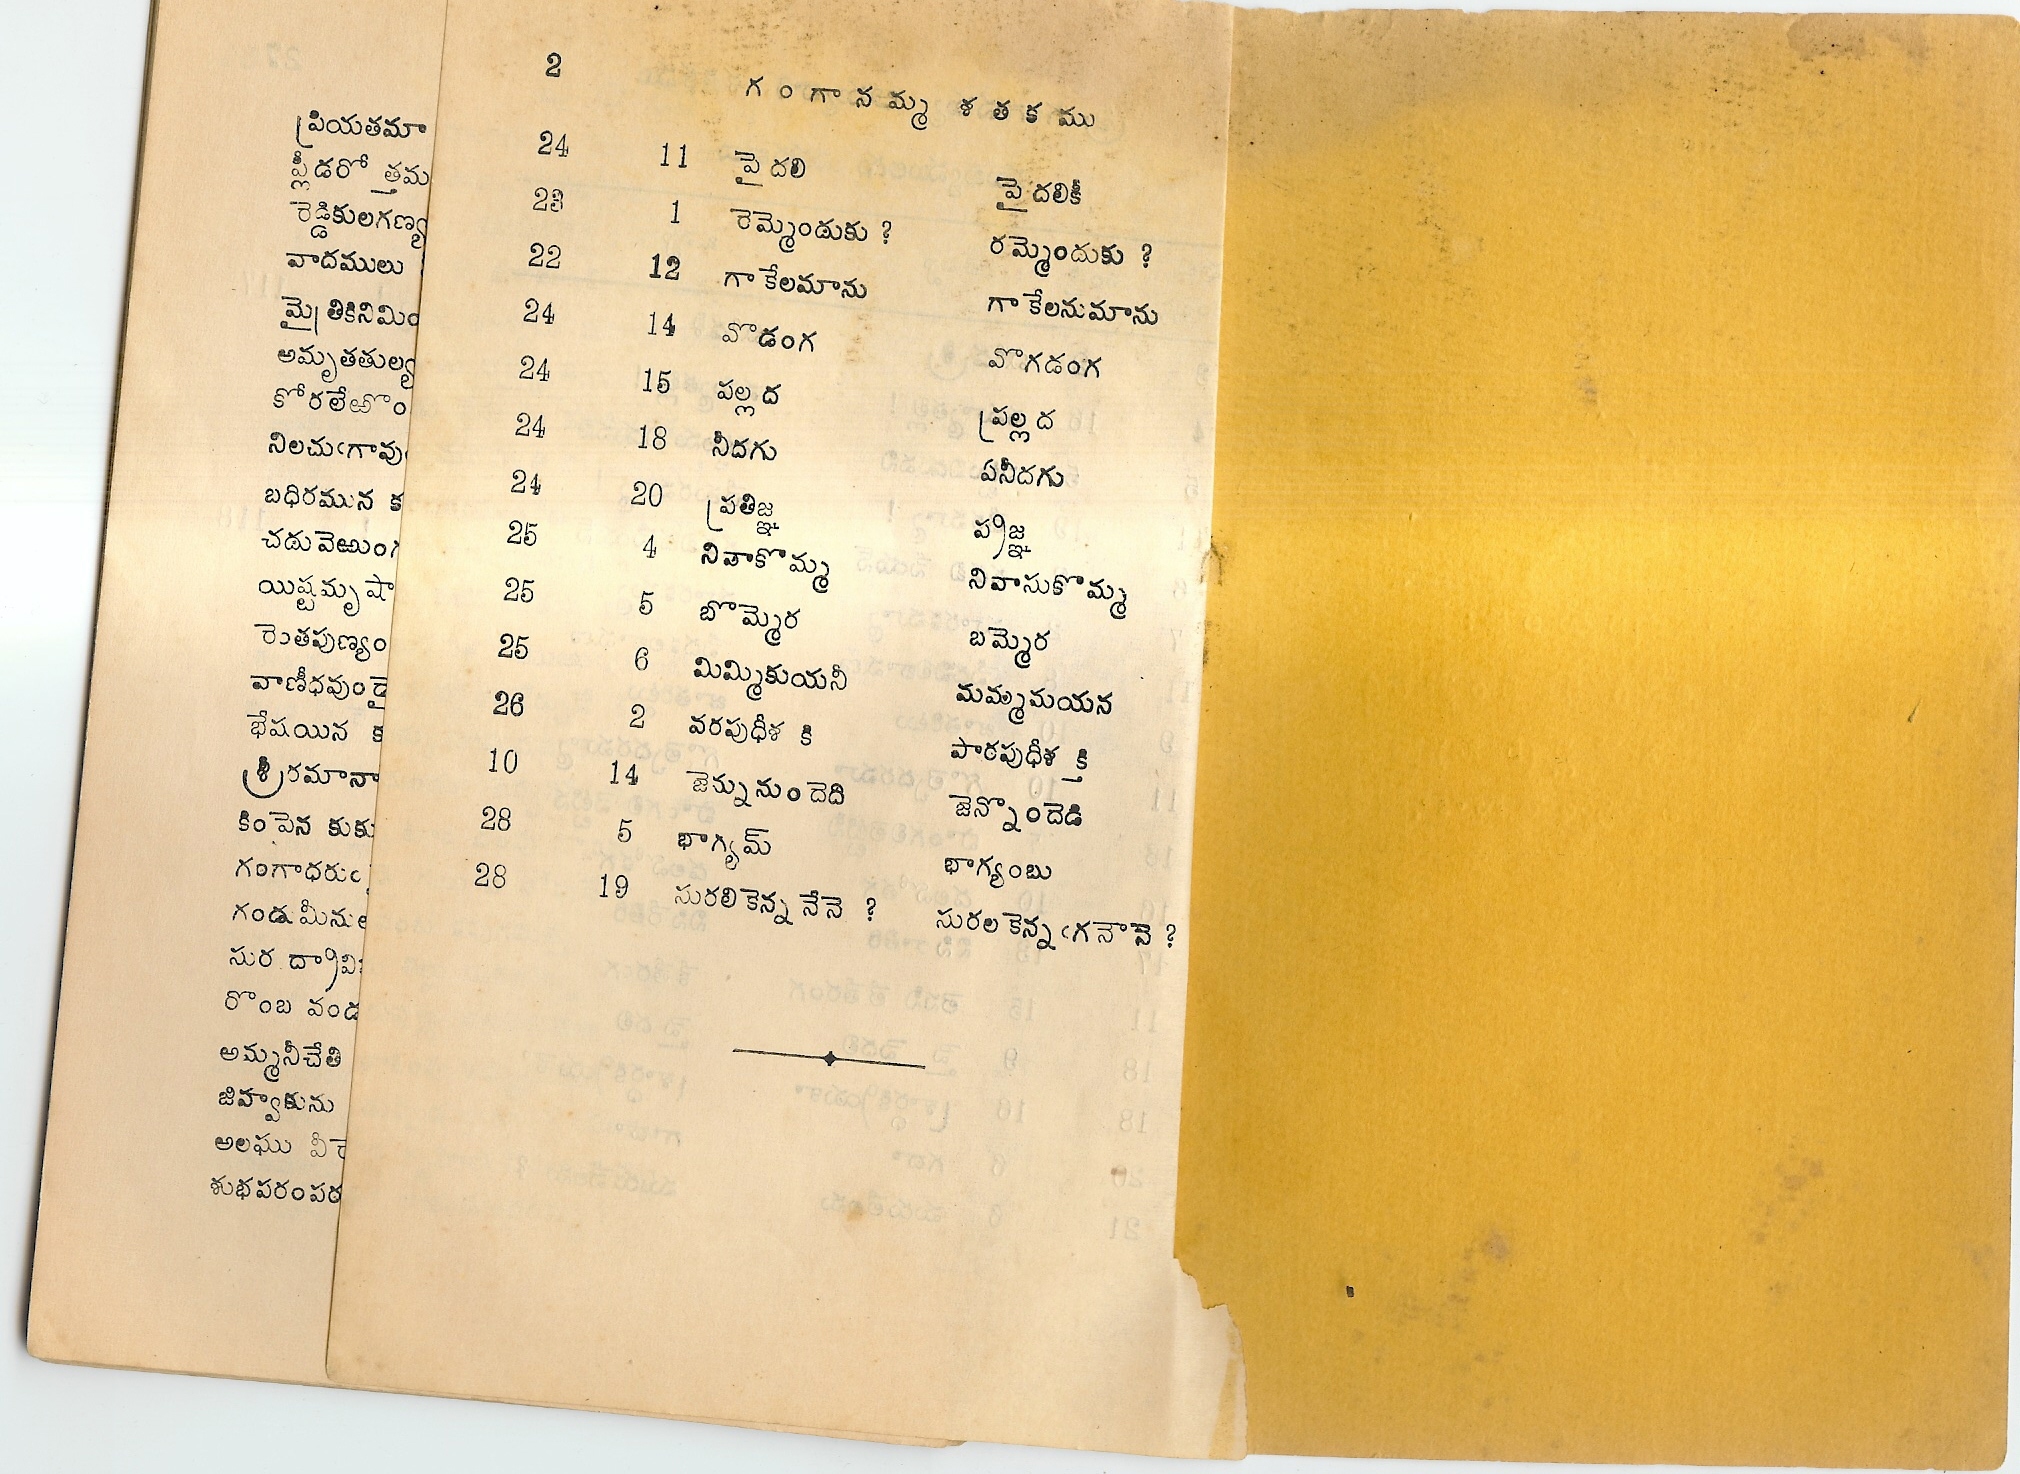 2
గంగానమ్మ శతకము
24 11 పై దలి పై దలికీ
23 1 రెమ్మెందుకు ? రమ్మెందుకు ?
22 12 గా కేలమాను గా కేలనుమాను
24 14 వొడంగ వొగడంగ
24 15 పల్లద ప్రల్లద
24 18 నీదగు ఏనీదగు
24 20 ప్రతిజ్ఞ
25 4 నివాకొమ్మ నివాసుకొమ్మ
25 5 బొమ్మెర బమ్మెర
25 6 మిమ్మికుయనీ మమ్మమయన
26 2 వరపుధీశ కి పారపుధీశ క్తి
10 14 జెన్నునుం దెది జెన్నొందెడి
28 5 భాగ్యమ్ భాగ్యంబు
28 19 సురలి కెన్న నేనె ? సురల కెన్నఁగ నౌనె ?
ప్రియతమా
ప్లీడరో త్తమ
రెడ్డికులగణ్య
వాదములు
మై త్రికినిమిం
అమృతతుల్య
కోరలేఱొం
నిలచుఁగావు
బధిరమున క
చదువెఱుంగ
యిష్టమృషా
రెుతపుణ్యం
వాణీధవుండై
భేషయిన క
శ్రీరమానా
కింపెన కుకు
గంగాధరుఁ
గండమీనుల
సుర ద్రావి
రొంబ వండ
అమ్మనీచేతి
జివ్వాకును
అలఘు వీ
శుభపరంపర